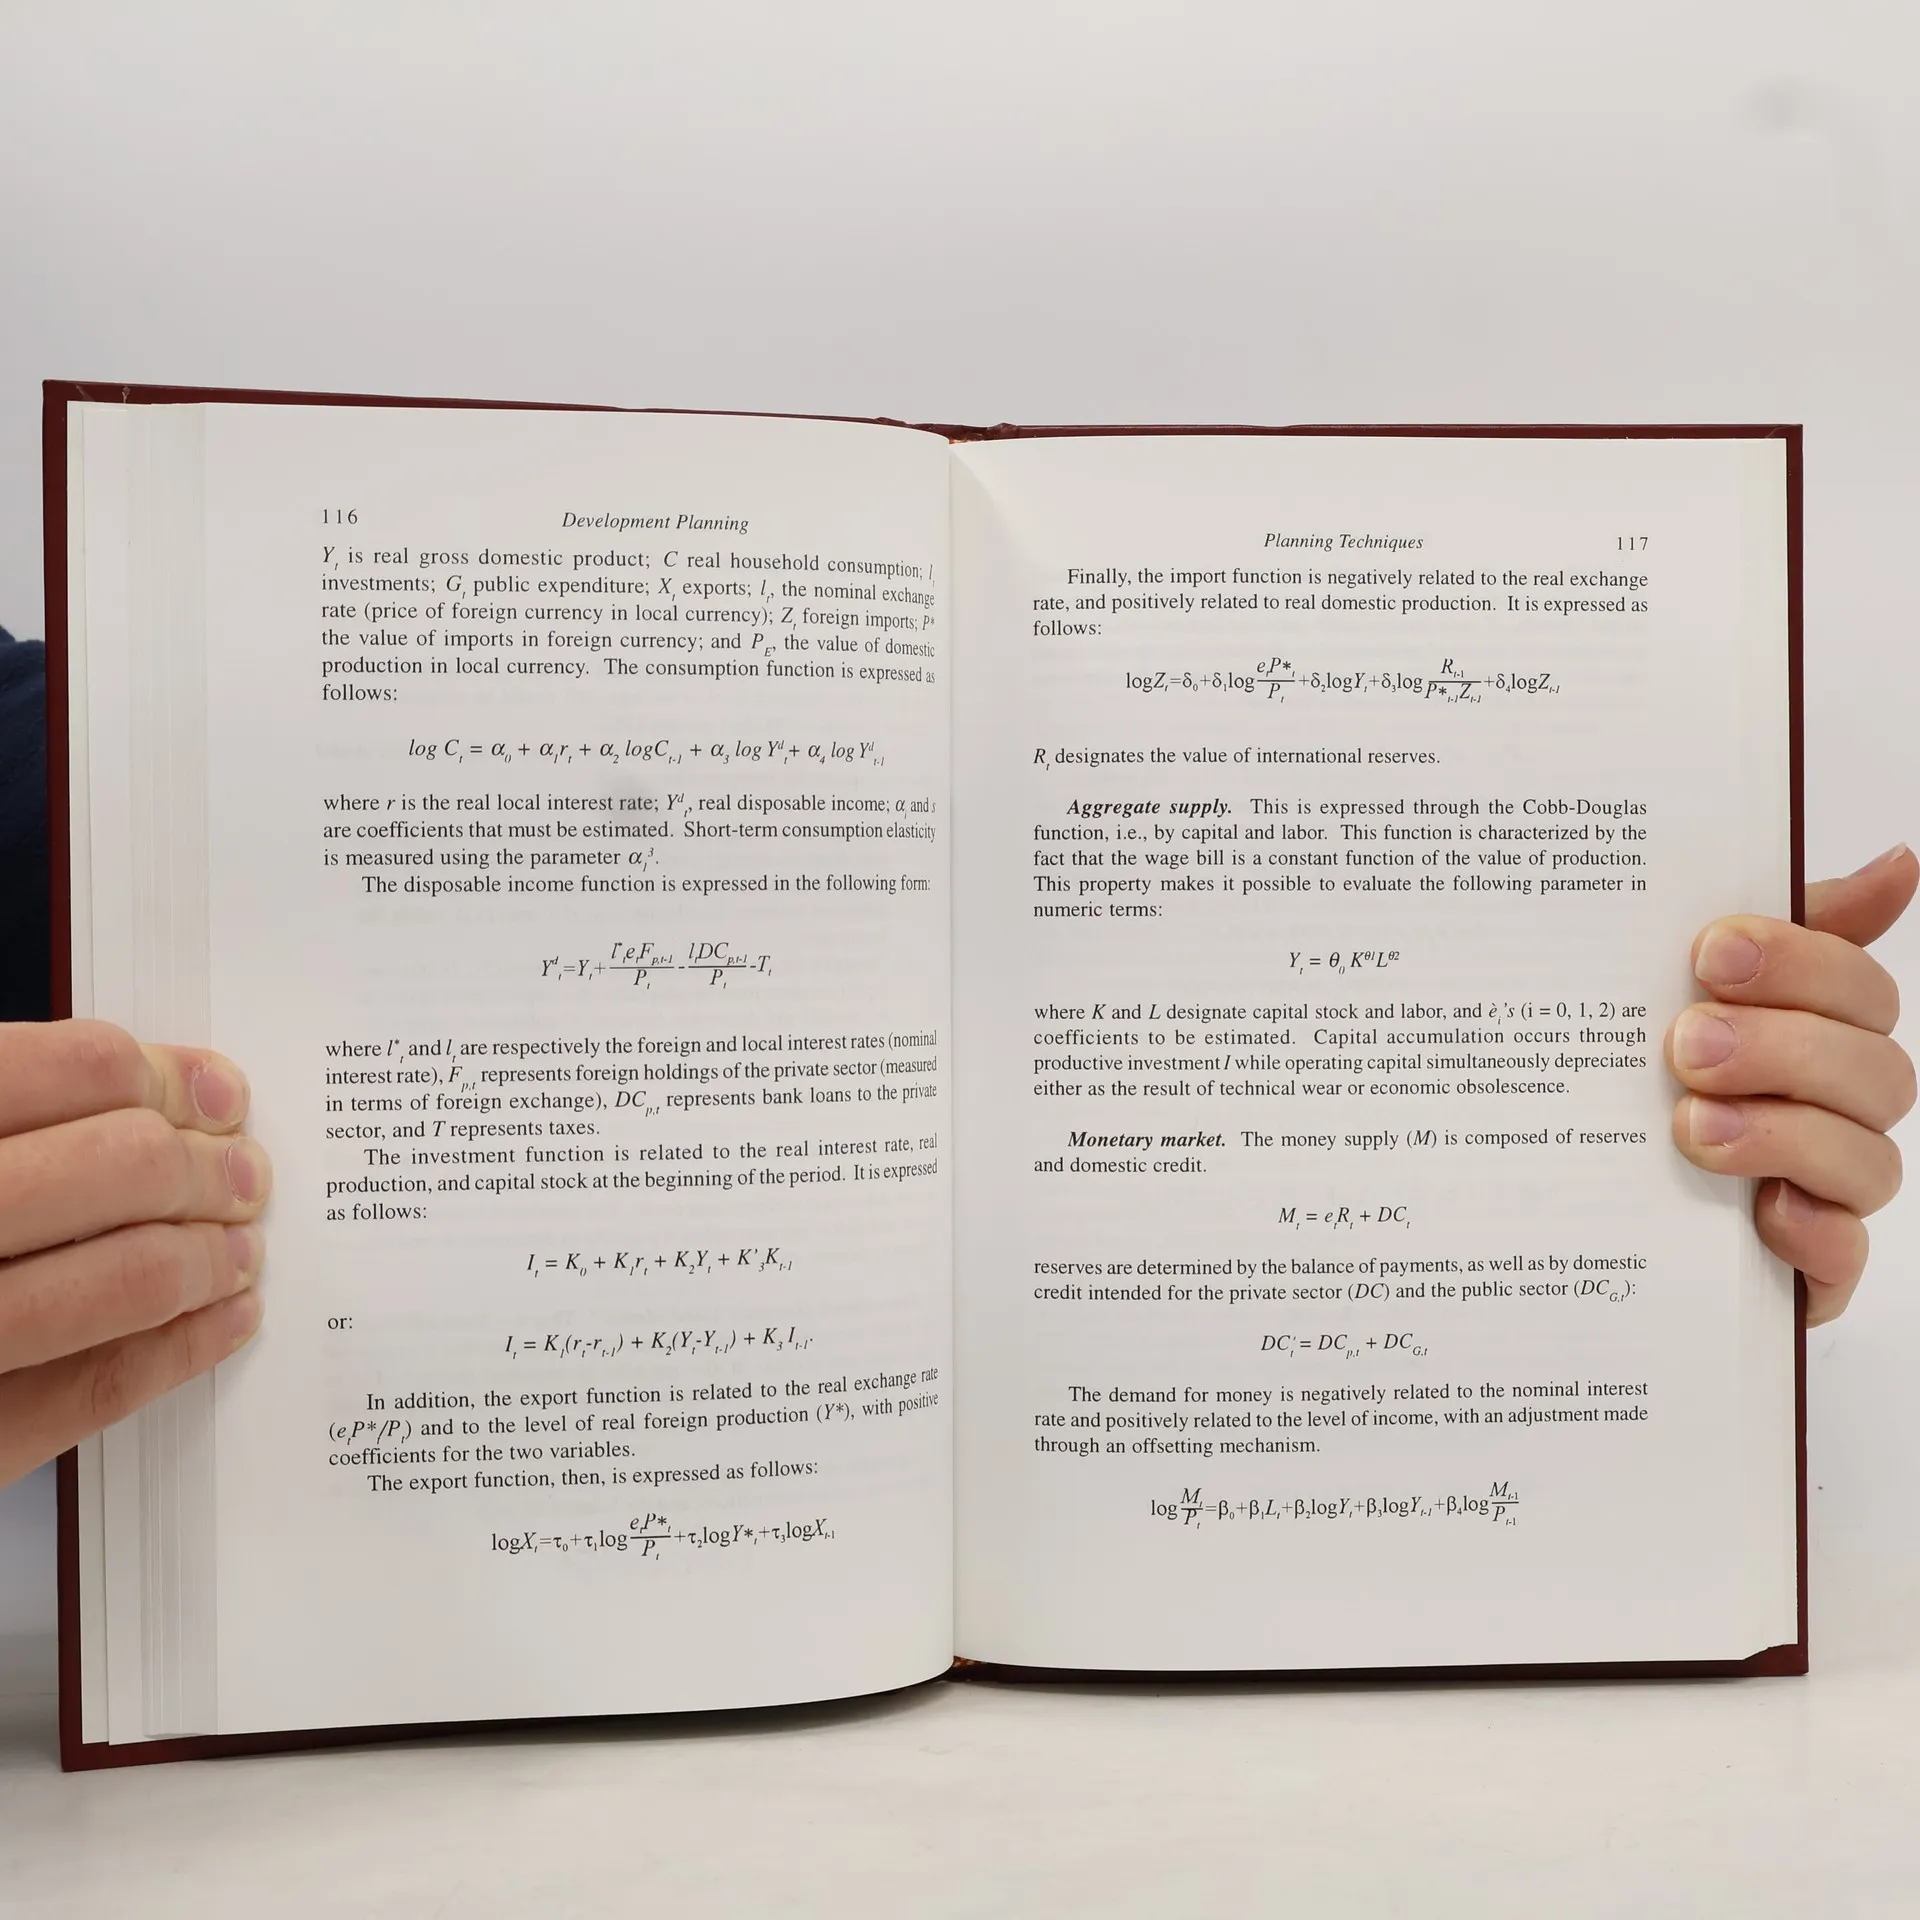 116
Development Planning
Y_t is real gross domestic product; C real household consumption; I_t
investments; G_t public expenditure; X_t exports; l_t, the nominal exchange
rate (price of foreign currency in local currency); Z_t foreign imports; P*
the value of imports in foreign currency; and P_E, the value of domestic
production in local currency. The consumption function is expressed as
follows:
log C_t = α_0 + α_1r_t + α_2 logC_t-1 + α_3 log Y^d_t + α_4 log Y^d_t-1
where r is the real local interest rate; Y^d_t, real disposable income; α_i and s
are coefficients that must be estimated. Short-term consumption elasticity
is measured using the parameter α_i^3.
The disposable income function is expressed in the following form:
Y^d_t=Y_t+ l*_te_tF_p,t-1/P_t - l_tDC_p,t-1/P_t -T_t
where l*_t and l_t are respectively the foreign and local interest rates (nominal
interest rate), F_p,t represents foreign holdings of the private sector (measured
in terms of foreign exchange), DC_p,t represents bank loans to the private
sector, and T represents taxes.
The investment function is related to the real interest rate, real
production, and capital stock at the beginning of the period. It is expressed
as follows:
I_t = K_0 + K_1r_t + K_2Y_t + K'_3K_t-1
or:
I_t = K_1(r_t-r_t-1) + K_2(Y_t-Y_t-1) + K_3 I_t-1.
In addition, the export function is related to the real exchange rate
(e_tP*_t/P_t) and to the level of real foreign production (Y*), with positive
coefficients for the two variables.
The export function, then, is expressed as follows:
logX_t=τ_0+τ_1log e_tP*_t/P_t +τ_2logY*_t+τ_3logX_t-1
Planning Techniques
117
Finally, the import function is negatively related to the real exchange
rate, and positively related to real domestic production. It is expressed as
follows:
logZ_t=δ_0+δ_1log e_tP*_t/P_t +δ_2logY_t+δ_3log R_t-1/P*_t-1Z_t-1 +δ_4logZ_t-1
R_t designates the value of international reserves.
Aggregate supply. This is expressed through the Cobb-Douglas
function, i.e., by capital and labor. This function is characterized by the
fact that the wage bill is a constant function of the value of production.
This property makes it possible to evaluate the following parameter in
numeric terms:
Y_t = θ_0 K^θ1 L^θ2
where K and L designate capital stock and labor, and è_i's (i = 0, 1, 2) are
coefficients to be estimated. Capital accumulation occurs through
productive investment I while operating capital simultaneously depreciates
either as the result of technical wear or economic obsolescence.
Monetary market. The money supply (M) is composed of reserves
and domestic credit.
M_t = e_tR_t + DC_t
reserves are determined by the balance of payments, as well as by domestic
credit intended for the private sector (DC) and the public sector (DC_G,t):
DC'_t = DC_p,t + DC_G,t
The demand for money is negatively related to the nominal interest
rate and positively related to the level of income, with an adjustment made
through an offsetting mechanism.
log M_t/P_t =β_0+β_1L_t+β_2logY_t+β_3logY_t-1+β_4log M_t-1/P_t-1